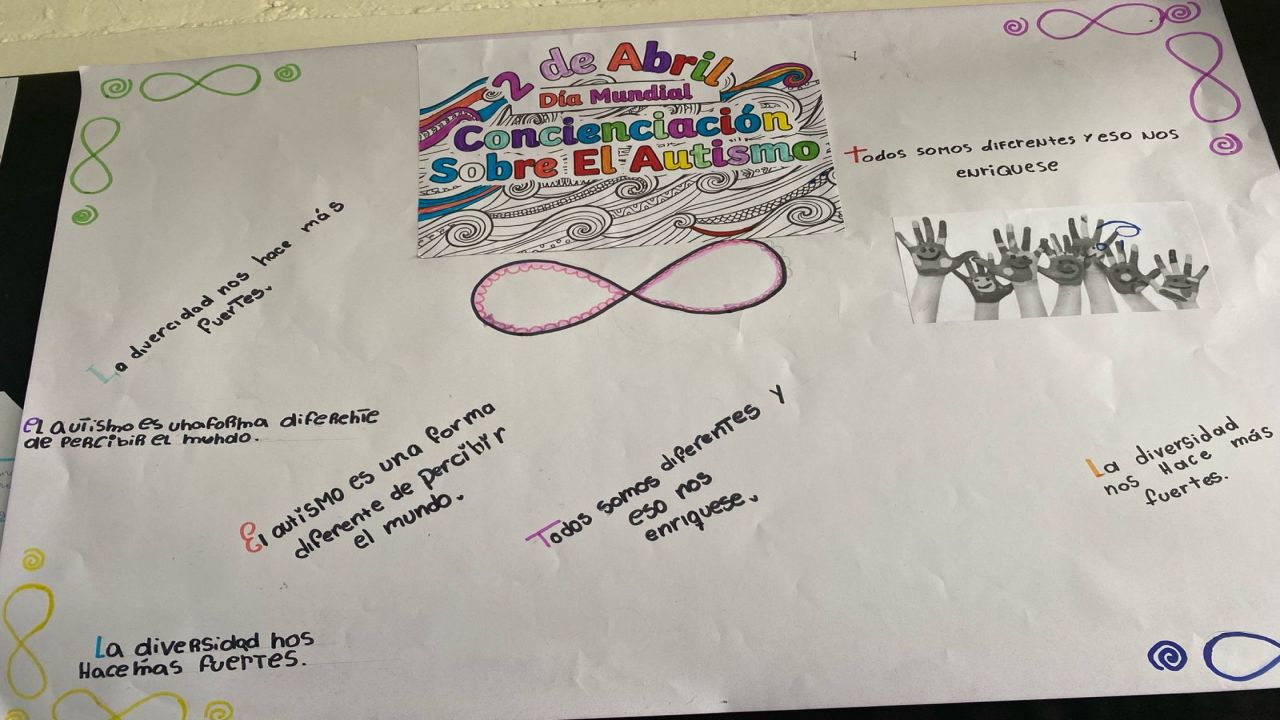 2 de Abril
Día Mundial
Concienciación
Sobre El Autismo
Todos somos diferentes y eso nos
enriquese
La divercidad nos hace más
fuertes.
El autismo es una forma diferente
de percibir el mundo.
El autismo es una forma
diferente de percibir
el mundo.
Todos somos diferentes y
eso nos
enriquese.
La diversidad
nos Hace más
fuertes.
La diversidad nos
Hace más fuertes.